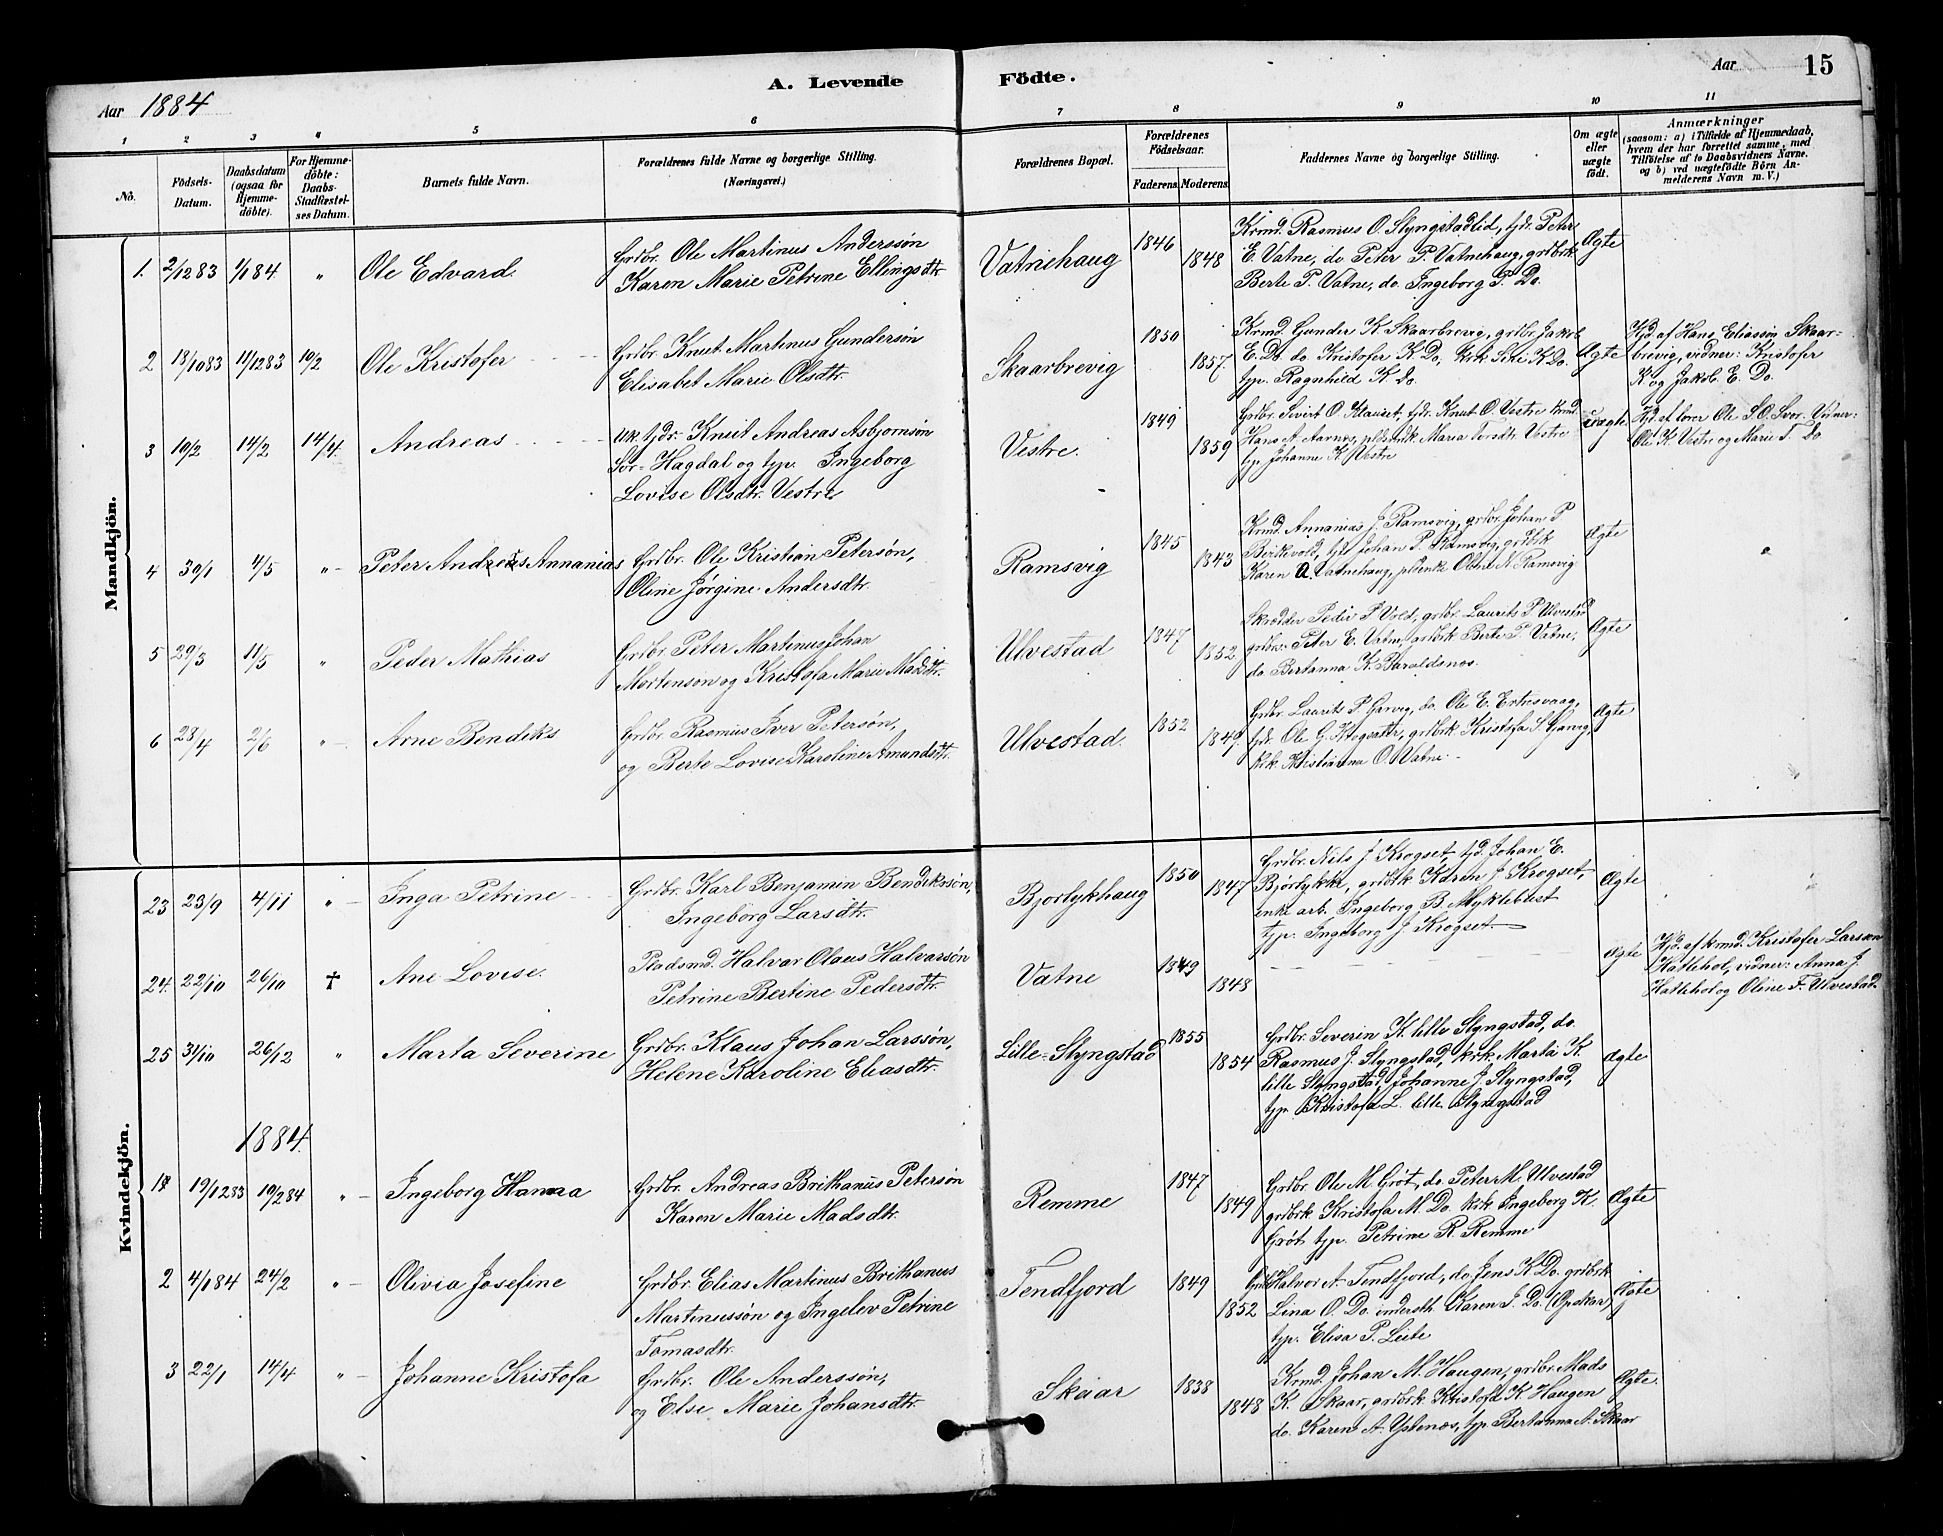 Aar 1884
A. Levende Födte.
Aar 15
1 2 3 4 5 6 7 8 9 10 11
No.
Födsels-Datum.
Daabsdatum (ogsaa for Hjemme-döbte).
For Hjemme-döbte: Daabs-Stadfæstel-ses Datum.
Barnets fulde Navn.
Forældrenes fulde Navne og borgerlige Stilling.
(Næringsvei.)
Forældrenes Bopæl.
Forældrenes Födselsaar.
Faderens. Moderens.
Faddernes Navne og borgerlige Stilling.
Om ægte eller uægte födt.
Anmærkninger
(saasom: a) i Tilfælde af Hjemmedaab,
hvem der har forrettet samme, med
Tilföielse af to Daabsvidners Navne,
og b) ved uægtefödte Börn An-
melderens Navn m. V.)
Mandkjön.
1. 2/12 83 1/1 84 " Ole Edvard
Grdbr. Ole Martinus Anderssøn
Karen Marie Petrine Ellingsdtr.
Vatnehaug 1846 1848
Krmd. Rasmus O. Slyngstadlid, tjdr. Peter
E. Vatne, do Peter P. Vatnehaug, grdbrk
Berte P. Vatne, do. Ingeborg P. Do.
Ægte
2 18/10 83 11/12 83 10/2 Ole Kristofer
Grdbr. Knut Martinus Gundersøn
Elisabet Marie Olsdtr.
Skaarbrevig 1850 1857.
Krmd. Gunder K. Skaarbrevig, grdbr. Jakob
E. Do. do. Kristofer K Do, krk K. Do.
typ. Ragnhild K. Do.
Ægte
Hjd. af Hans Eliassøn Skaar-
brevig, vidner: Kristofer
K og Jakob E. Do.
3 10/2 14/2 14/4 Andreas
Uk. tjdr. Knut Andreas Asbjørnsøn
Sør-Hagdal og typ. Ingeborg
Lovise Olsdtr. Vestre
Vestre. 1849 1859
Grdbr. Sivert O. Klauset, tjdr. Knut O. Vestre krmd.
Hans A. Aarnes, Maria Vestre
typ. Johanne K. Vestre
uægte.
Hjd. af lærer Ole S. Vidner:
Ole K. Vestre og Marie T. Do
4 30/1 4/5 " Peter Andreas Annanias
Grdbr. Ole Kristian Petersøn,
Oline Jørgine Andersdtr.
Ramsvig 1845 1843
Krmd. Annanias J. Ramsvig, grdbr. Johan P
tjdr. Johan P. Ramsvig, grdbrk
Karen A. Vatnehaug, N. Ramsvig
Ægte
5 29/3 11/5 " Peder Mathias
Grdbr Peter Martinus Johan
Mortensøn og Kristofa Marie Madsdtr.
Ulvestad 1847 1852
Skrædder Peder P. Vold, grdbr. Laurits P Ulvestad
grdbr. Peter E. Vatne, grdbrk Berte P. Vatne,
do. Bertanna K.
Ægte
6 28/4 2/6 " Arne Bendiks
Grdbr Rasmus Iver Petersøn,
og Berte Lovise Karoline Amundsdtr.
Ulvestad. 1852 1849.
Grdbr. Laurits P. Garvig, do. Ole E. Ertesvaag,
tjdr. Ole G. grdbrk Kristofa S. Garvig
krk. Kristianna O. Vatne.
Ægte
Kvindekjön.
23 23/9 4/11 " Inga Petrine
Grdbr. Karl Benjamin Bendikssøn,
Ingeborg Larsdtr.
Bjorlykhaug 1850 1847
Grdbr. Nils J Krogset, tjd. Johan E.
Bjørlykke, grdbrk Karen J Krogset,
enke arb. Ingeborg B. Myklebust
typ. Ingeborg J. Krogset.
Ægte
24. 22/10 26/10 † Ane Lovise.
Pladsmd. Halvar Olaus Halvarsøn
Petrine Bertine Pedersdtr.
Vatne 1849 1848
Ægte
Hjd. af krmd. Kristofer Larssøn
Hattehol, vidner: Anna J.
Hattehol og Oline F. Ulvestad.
25 31/10 26/12 " Marta Severine
Grdbr. Klaus Johan Larssøn,
Helene Karoline Eliasdtr.
Lille-Slyngstad 1855 1854
Grdbr. Severin K. lille Slyngstad, do.
Rasmus J. Slyngstad, krk. Marta K.
lille Slyngstad, Johanne J. Slyngstad,
typ. Kristofa L. lille Slyngstad
Ægte
1884.
1 19/12 83 10/2 84 " Ingeborg Hanna
Grdbr. Andreas Brithanus Petersøn
Karen Marie Madsdtr.
Remme 1847 1849
Grdbr. Ole M. Grøt, do. Peter M. Ulvestad
grdbrk Kristofa M. Do. krk. Ingeborg K.
Grøt, typ. Petrine R. Remme
Ægte
2 4/1 84 24/2 " Olivia Josefine
Grdbr. Elias Martinus Brithanus
Martinussøn og Ingelev Petrine
Tomasdtr.
Tendfjord 1849 1852
Grdbr. Halvor A. Tendfjord, do. Jens K. Do. grdbrk
Lina O. Do. Karen J. Do. (Opskar)
typ. Elisa P. Leite
Ægte
3 22/1 14/4 " Johanne Kristofa
Grdbr. Ole Anderssøn,
og Else Marie Johansdtr.
Skaar 1838 1848
Krmd. Johan M. Haugen, grdbr. Mads
K. Skaar, grdbrk Kristofa K. Haugen
do. Karen A. Ystenes, typ. Bertanna A. Skaar
Ægte.